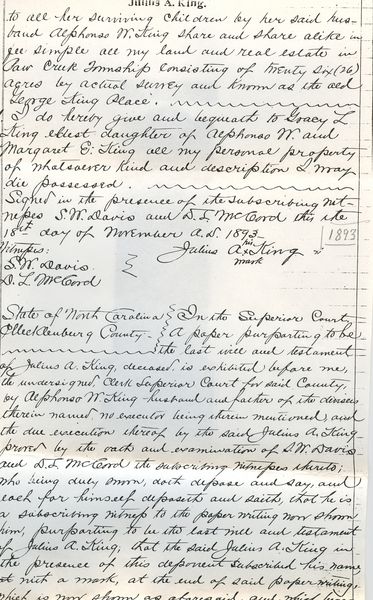 Julius A. King.
to all her surviving children by her said hus-
band Alphonso W. King share and share alike in
fee simple all my land and real estate in
Paw Creek Township consisting of twenty six (26)
acres by actual survey and known as the old
George King Place.
I do hereby give and bequeath to Gracy L
King eldest daughter of Alphonso W. and
Margaret E. King all my personal property
of whatsoever kind and description I may
die possessed.
Signed in the presence of the subscribing wit-
nesses S.W. Davis and D.L. McCord this the
18th day of November A.D. 1893
1893
Witness: Julius A. his x mark King
S.W. Davis
D. L. McCord
State of North Carolina } In the Superior Court
Mecklenburg County } A paper purporting to be
the last will and testament
of Julius A. King, deceased is exhibited before me,
the undersigned, Clerk Superior Court for said County,
by Alphonso W. King husband and father of the devisees
therein named, no executor being therein mentioned, and
the due execution thereof by the said Julius A. King
proved by the oath and examination of S.W. Davis
and D.L. McCord the subscribing witnesses thereto;
who being duly sworn, doth depose and say, and
each for himself deposeth and saith, that he is
a subscribing witness to the paper writing now shown
him, purporting to be the last will and testament
of Julius A. King, that the said Julius A. King in
the presence of this deponent subscribed his name
with a mark, at the end of said paper writing,
which is now shown as aforesaid, and which